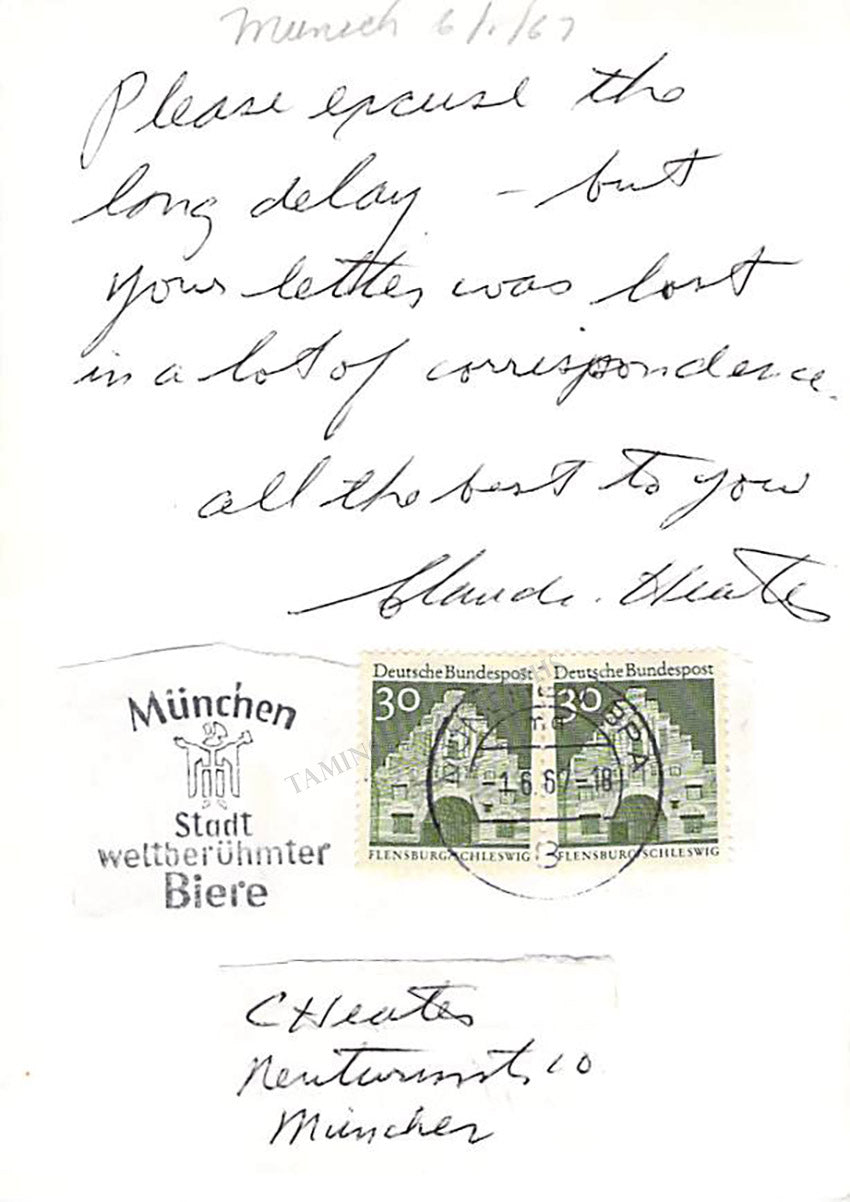 Munich 6/1/67
Please excuse the
long delay – but
your letter was lost
in a lot of correspondence.
all the best to you
Claude Heater
München
Stadt
weltberühmter
Biere
Deutsche Bundespost
30
FLENSBURG/SCHLESWIG
Deutsche Bundespost
30
FLENSBURG/SCHLESWIG
-1.6.67-18
8
TAMINO
C Heater
Neuturmstr. 10
München